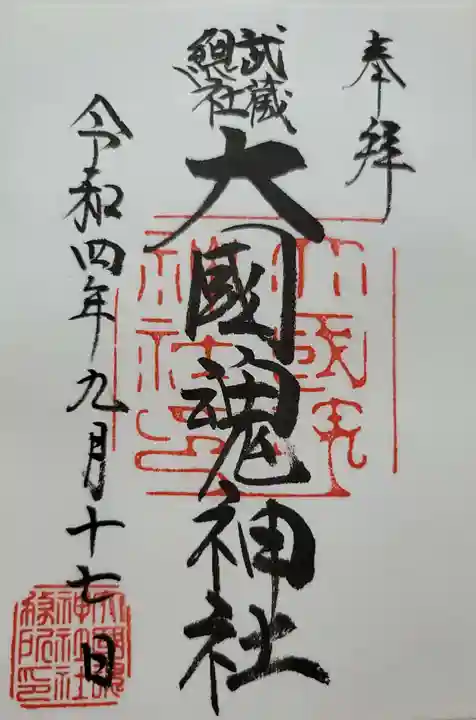 奉拝
武蔵
總社
大國魂神社
令和四年九月十七日